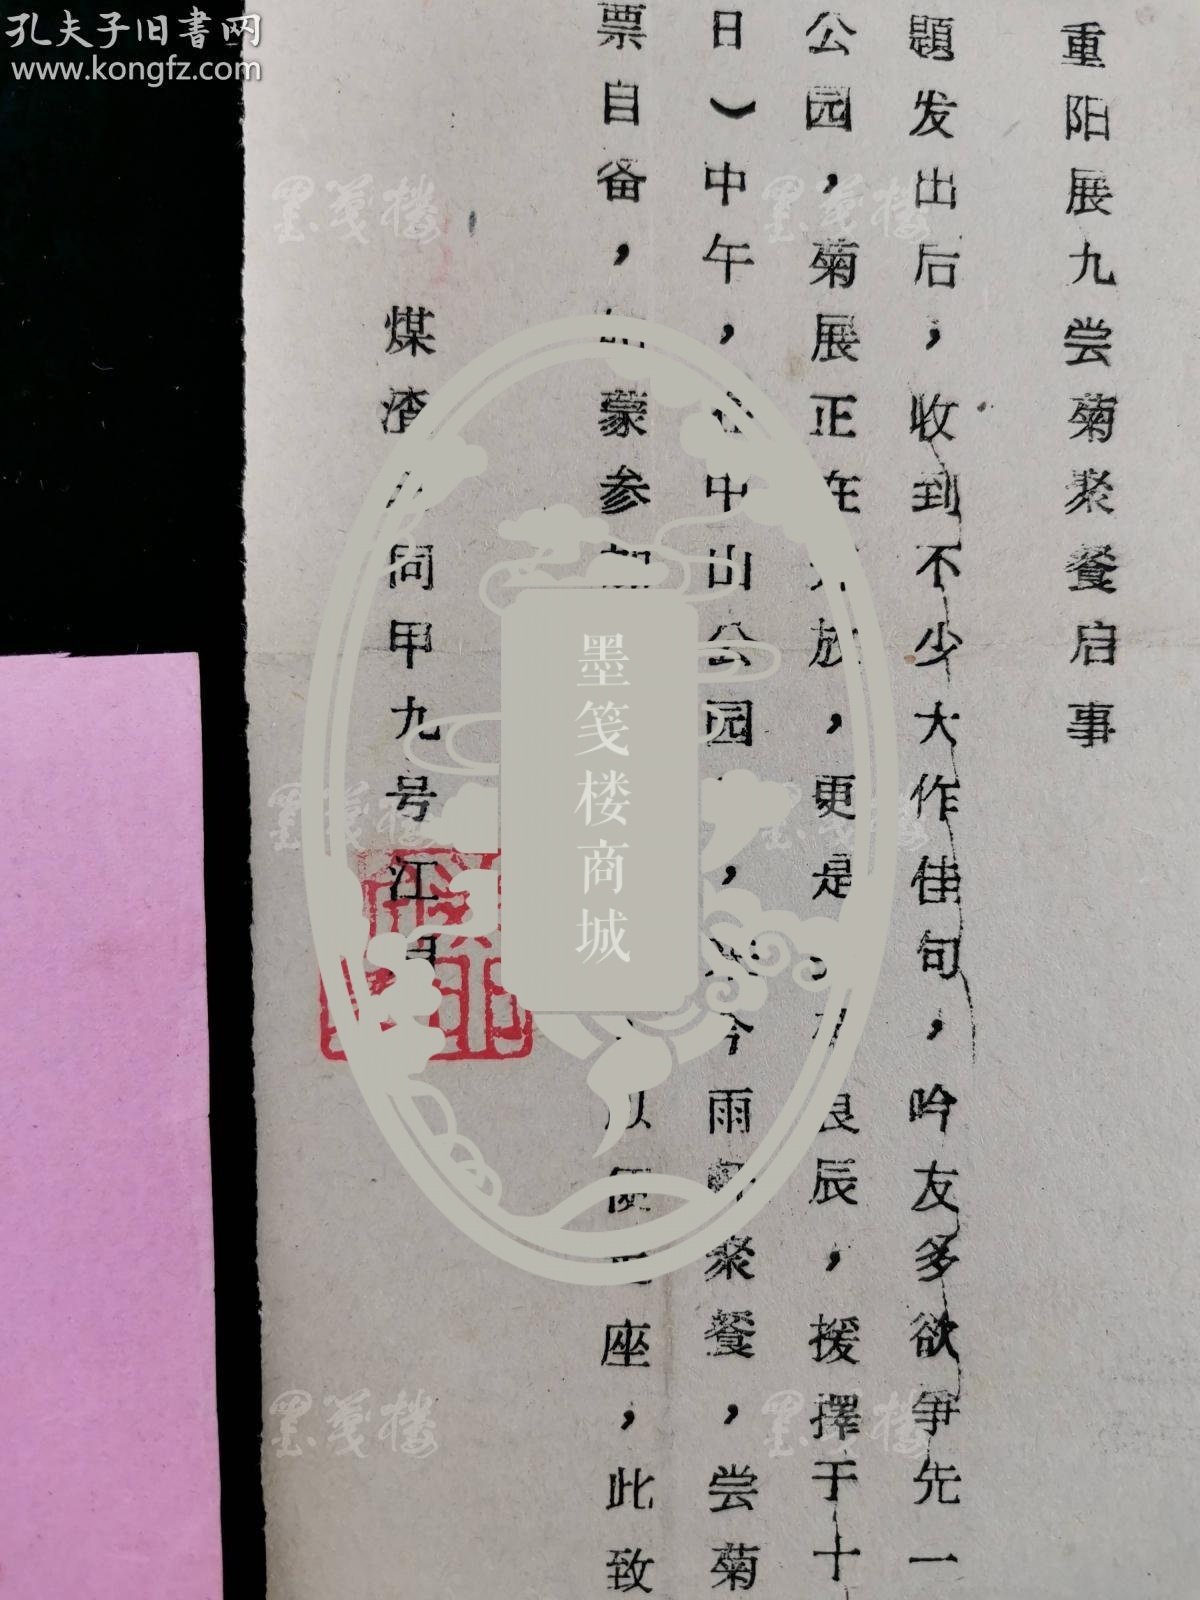 孔夫子旧書网
www.kongfz.com
重阳展九尝菊聚餐启事
题发出后，收到不少大作佳句，吟友多欲争先一
公园，菊展正在放，更是良辰，援擇于十
日）中午，中山公园，今雨聚餐，尝菊
票自备，蒙参加以便座，此致
煤渣同甲九号江
墨笺楼商城
墨笺楼
墨笺楼
墨笺楼
墨笺楼
墨笺楼
墨笺楼